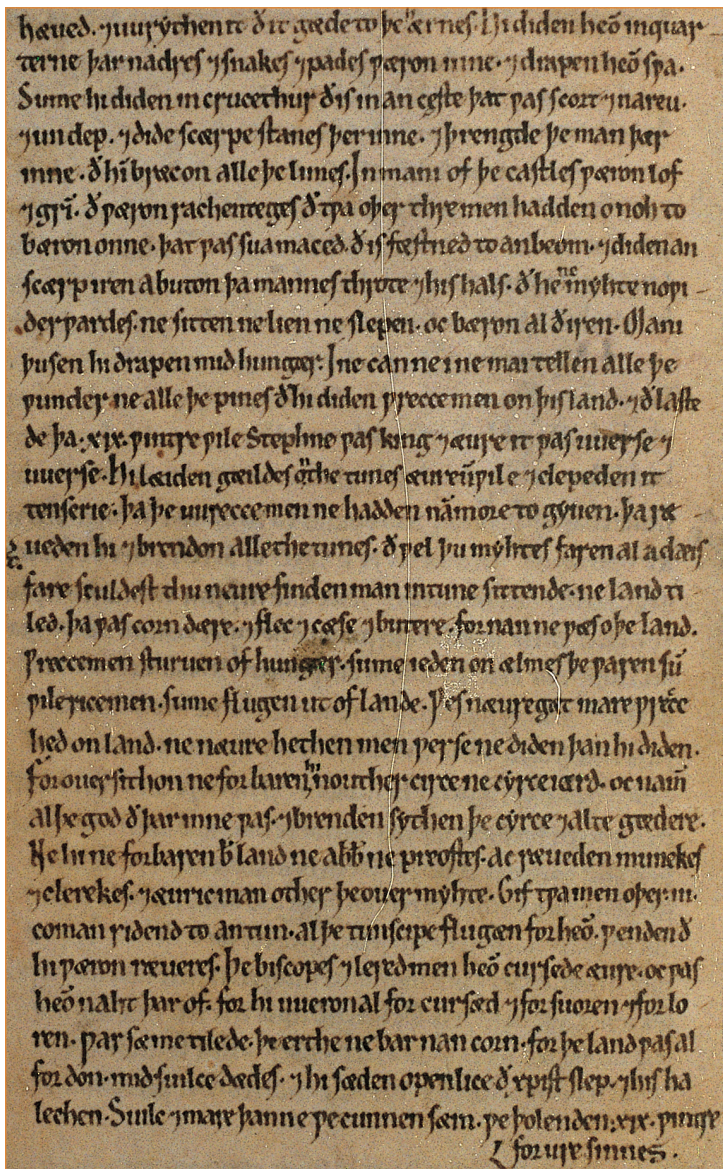 hæued. ⁊ uurythen it ð it gæde to þe hærnes. Hi diden heō in quar
terne þar nadres ⁊ snakes ⁊ pades ƿæron inne. ⁊ drapen heō sƿa.
Sume hi diden in crucethur ð is in an ceste þat ƿas scort ⁊ nareu.
⁊ un dep. ⁊ dide scærpe stanes þer inne. ⁊ þrengde þe man þær
inne. ð hī bræcon alle þe limes. In mani of þe castles ƿæron lof
⁊ grī. ð ƿæron rachenteges ð tƿa oþer thre men hadden onoh to
bæron onne. þat ƿas sua maced ð is fæstned to an beom. ⁊ diden an
scærp iren abuton þa mannes throte ⁊ his hals. ð he ne myhte noƿi
derƿardes. ne sitten ne lien ne slepen. oc bæron al ð iren. Mani
þusen hi drapen mid hungær. I ne can ne i ne mai tellen alle þe
ƿunder ne alle þe pines ð hi diden ƿrecce men on þis land. ⁊ ð laste
de þa .xix. ƿintre ƿile Stephne ƿas king ⁊ æure it ƿas uuerse ⁊
uuerse. Hi læiden gæildes on the tunes æure ū ƿile ⁊ clepeden it
tenserie. þa þe uurecce men ne hadden nā more to gyuen. þa ræ
ueden hi ⁊ brendon alle the tunes. ð ƿel þu myhtes faren al a dæis
fare sculdest thu neure finden man in tune sittende. ne land ti
led. þa ƿas corn dære. ⁊ flec ⁊ cæse ⁊ butere. for nan ne ƿæs o þe land.
ƿrecce men sturuen of hungær. sume ieden on ælmes þe ƿaren sū
ƿile rice men. sume flugen ut of lande. ƿes næure gæt mare ƿrecce
hed on land. ne næure hethen men ƿerse ne diden þan hi diden.
for ouer sithon ne for baren hi nouther circe ne cyrce iærd. oc namē
al þe god ð þar inne ƿas. ⁊ brenden sythen þe cyrce ⁊ alte gædere.
Ne hi ne forbaren b land ne abb ne preostes. ac ræueden munekes
⁊ clerekes. ⁊ æuric man other þe ouer myhte. Gif tƿa men oþer .iii.
coman ridend to an tun. al þe tunscipe flugæn for heō. ƿenden ð
hi ƿæron ræueres. þe biscopes ⁊ lered men heō cursede æure. oc ƿas
heō naht þar of. for hi uueron al for cursæd ⁊ for suoren ⁊ for lo
ren. ƿar sæ me tilede. þe erthe ne bar nan corn. for þe land ƿas al
for don. mid suilce dædes. ⁊ hi sæden openlice ð xpist slep. ⁊ his ha
lechen. Suilc ⁊ mare þanne ƿe cunnen sæin. ƿe þolenden .xix. ƿintre
for ure sinnes.